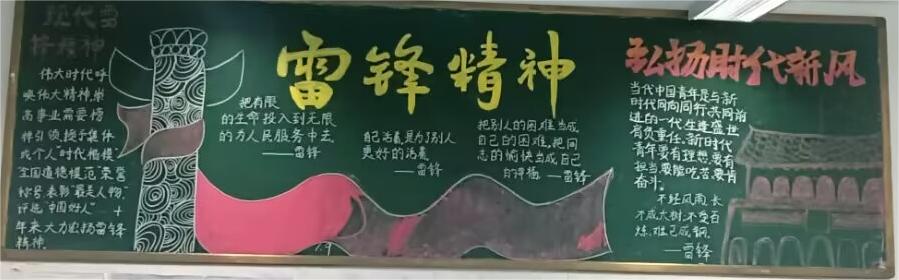 现代雷
锋精神
伟大时代呼
唤伟大精神,崇
高事业需要榜
样引领,授予集体
或个人"时代楷模"
全国道德模范荣誉
称号,表彰"最美人物"
评选"中国好人"
十
年来大力弘扬雷锋
精神.
雷锋精神
把有限
的生命投入到无限
的为人民服务中去.
——雷锋
自己活着,是为了别人
更好的活着
——雷锋
把别人的困难当成
自己的困难,把同
志的愉快当成自己
的幸福 —雷锋
弘扬时代新风
当代中国青年是与新
时代同向同行,共同前
进的一代,生逢盛世
肩负重任.新时代
青年要有理想,要有
担当,要能吃苦,要肯
奋斗.
不经风雨,长
不成大树;不受百
炼,难已成钢.
—雷锋